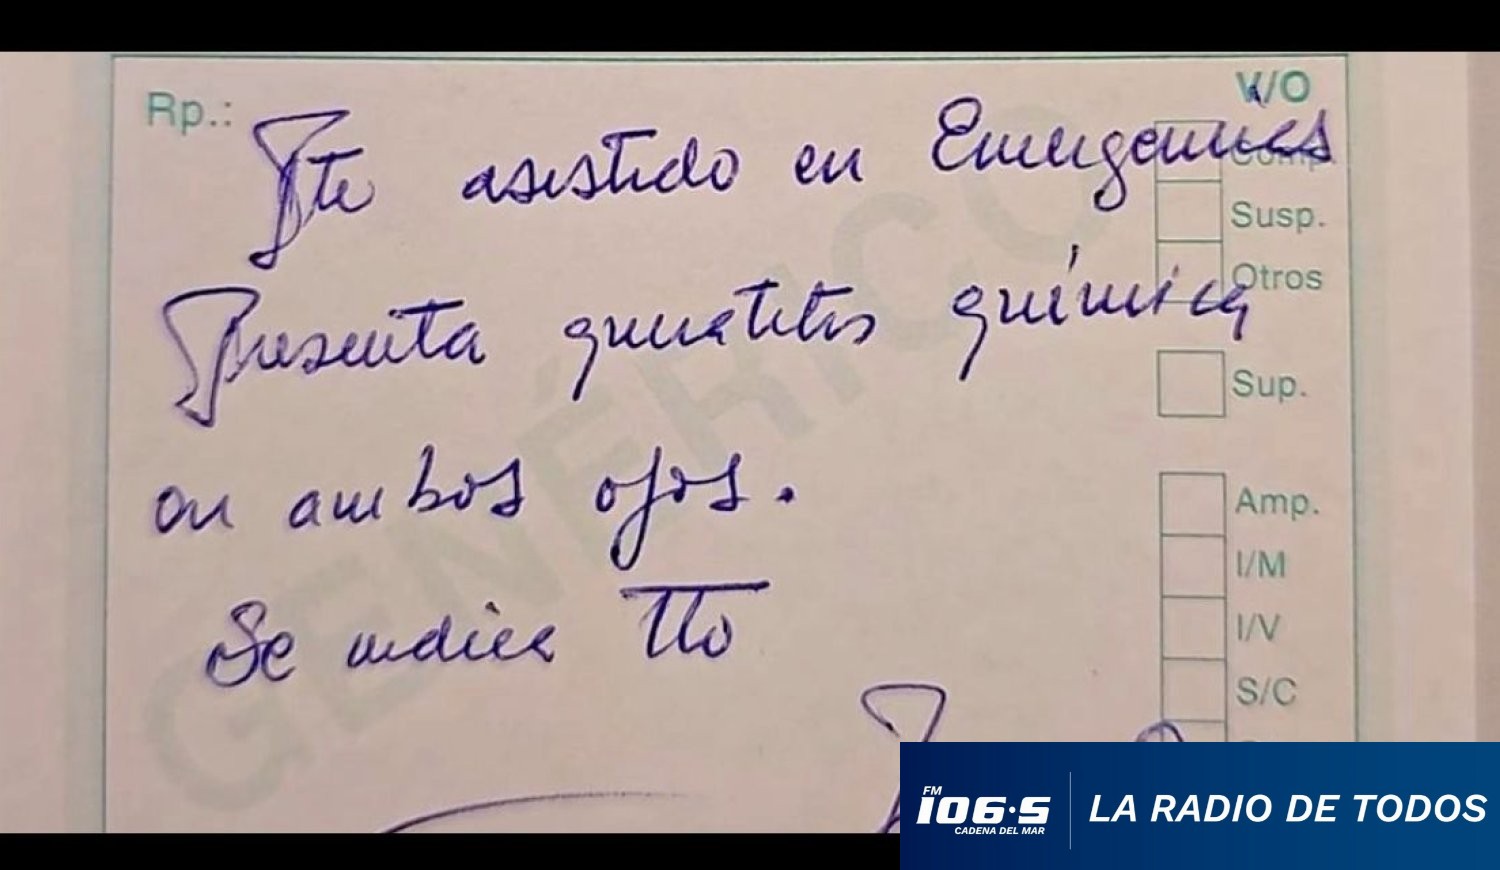 Rp.:
V/O
Pte asistido en Emergencias
Comp.
Susp.
Otros
Presenta queratitis química
Sup.
en ambos ojos.
Amp.
I/M
Se indica Tto
I/V
S/C
GENÉRICO
FM
106.5
CADENA DEL MAR
LA RADIO DE TODOS